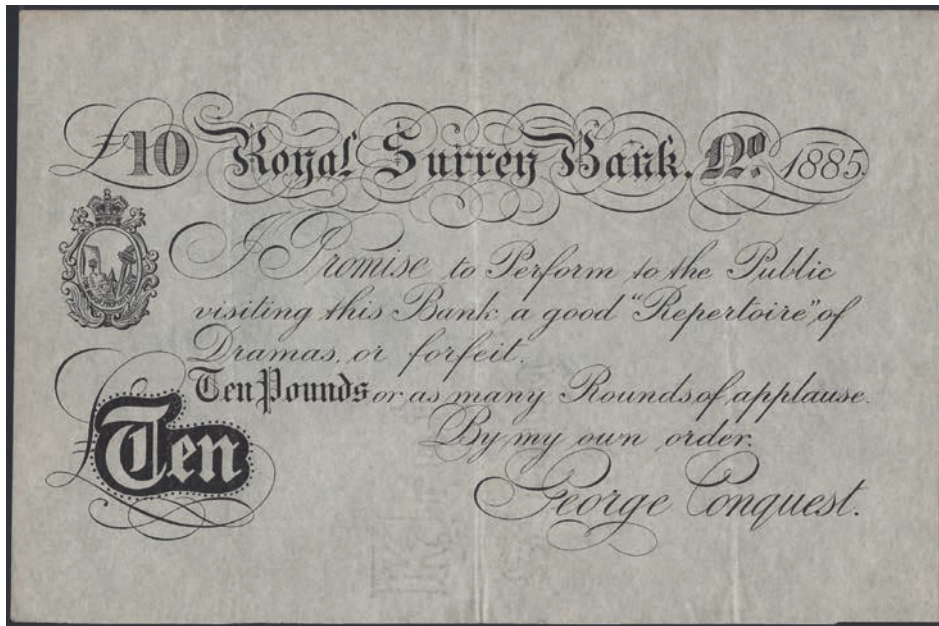 £10 Royal Surrey Bank. No. 1885.
I Promise to Perform to the Public
visiting this Bank a good "Repertoire" of
Dramas, or forfeit.
Ten Pounds or as many Rounds of applause.
By my own order.
£Ten
George Conquest.